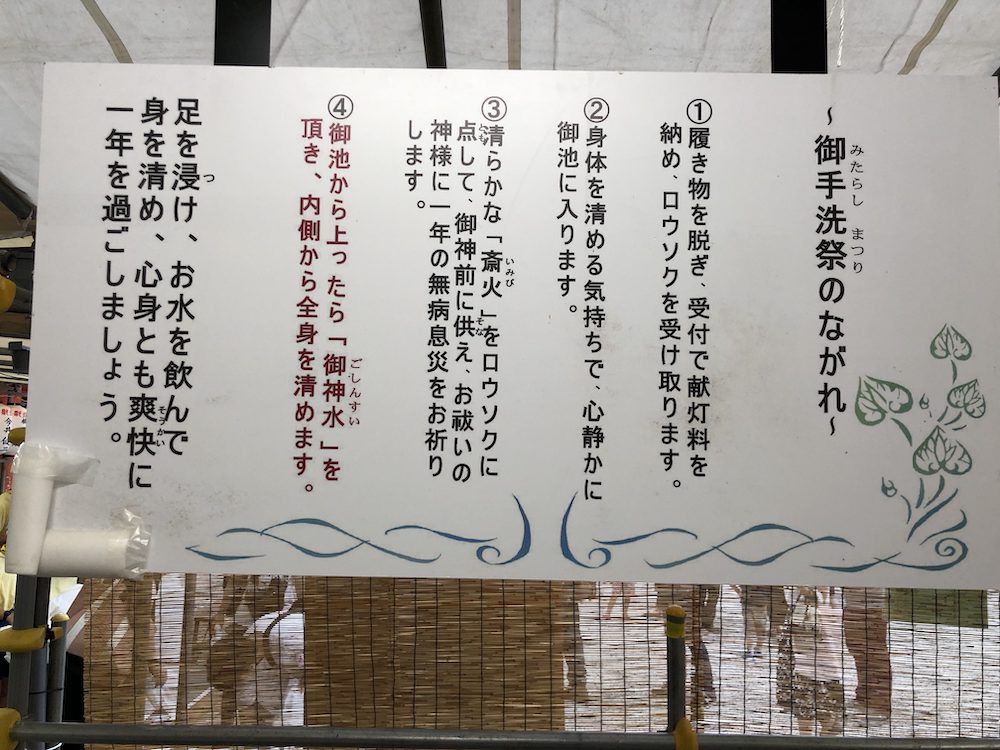 ～御手洗祭のながれ～
みたらし まつり
①履き物を脱ぎ、受付で献灯料を
納め、ロウソクを受け取ります。
②身体を清める気持ちで、心静かに
御池に入ります。
③清らかな「斎火」をロウソクに
いみび
点して、御神前に供え、お祓いの
とも そな
神様に一年の無病息災をお祈り
します。
④御池から上ったら「御神水」を
ごしんすい
頂き、内側から全身を清めます。
足を浸け、お水を飲んで
つ
身を清め、心身とも爽快に
そうかい
一年を過ごしましょう。